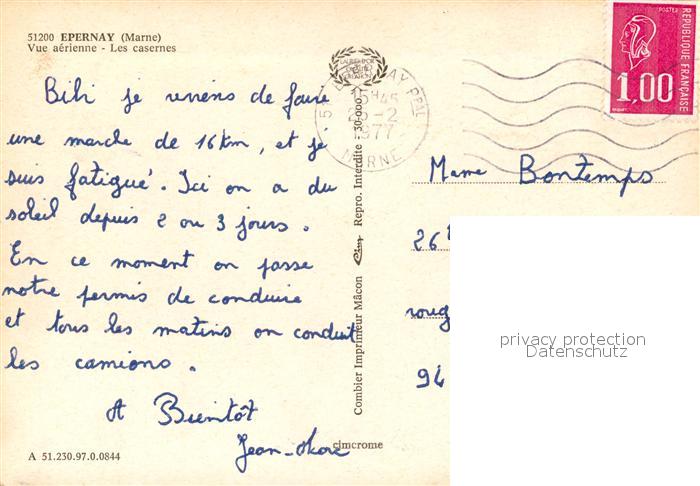 51200 EPERNAY (Marne)
Vue aérienne - Les casernes
Bibi je reviens de faire
une marche de 16 km, et je
suis fatigué. Ici on a du
soleil depuis 2 ou 3 jours.
En ce moment on passe
notre permis de conduire
et tous les matins on conduit
les camions.
A Bientôt
Jean-Marc
A 51.230.97.0.0844
cimcrome
Combier Imprimeur Mâcon Cim Repro. Interdite 30-000
EPERNAY PPAL
15H45
25-2
1977
MARNE
POSTES
REPUBLIQUE FRANÇAISE
1,00
Mame Bontemps
26
roug
94
privacy protection
Datenschutz